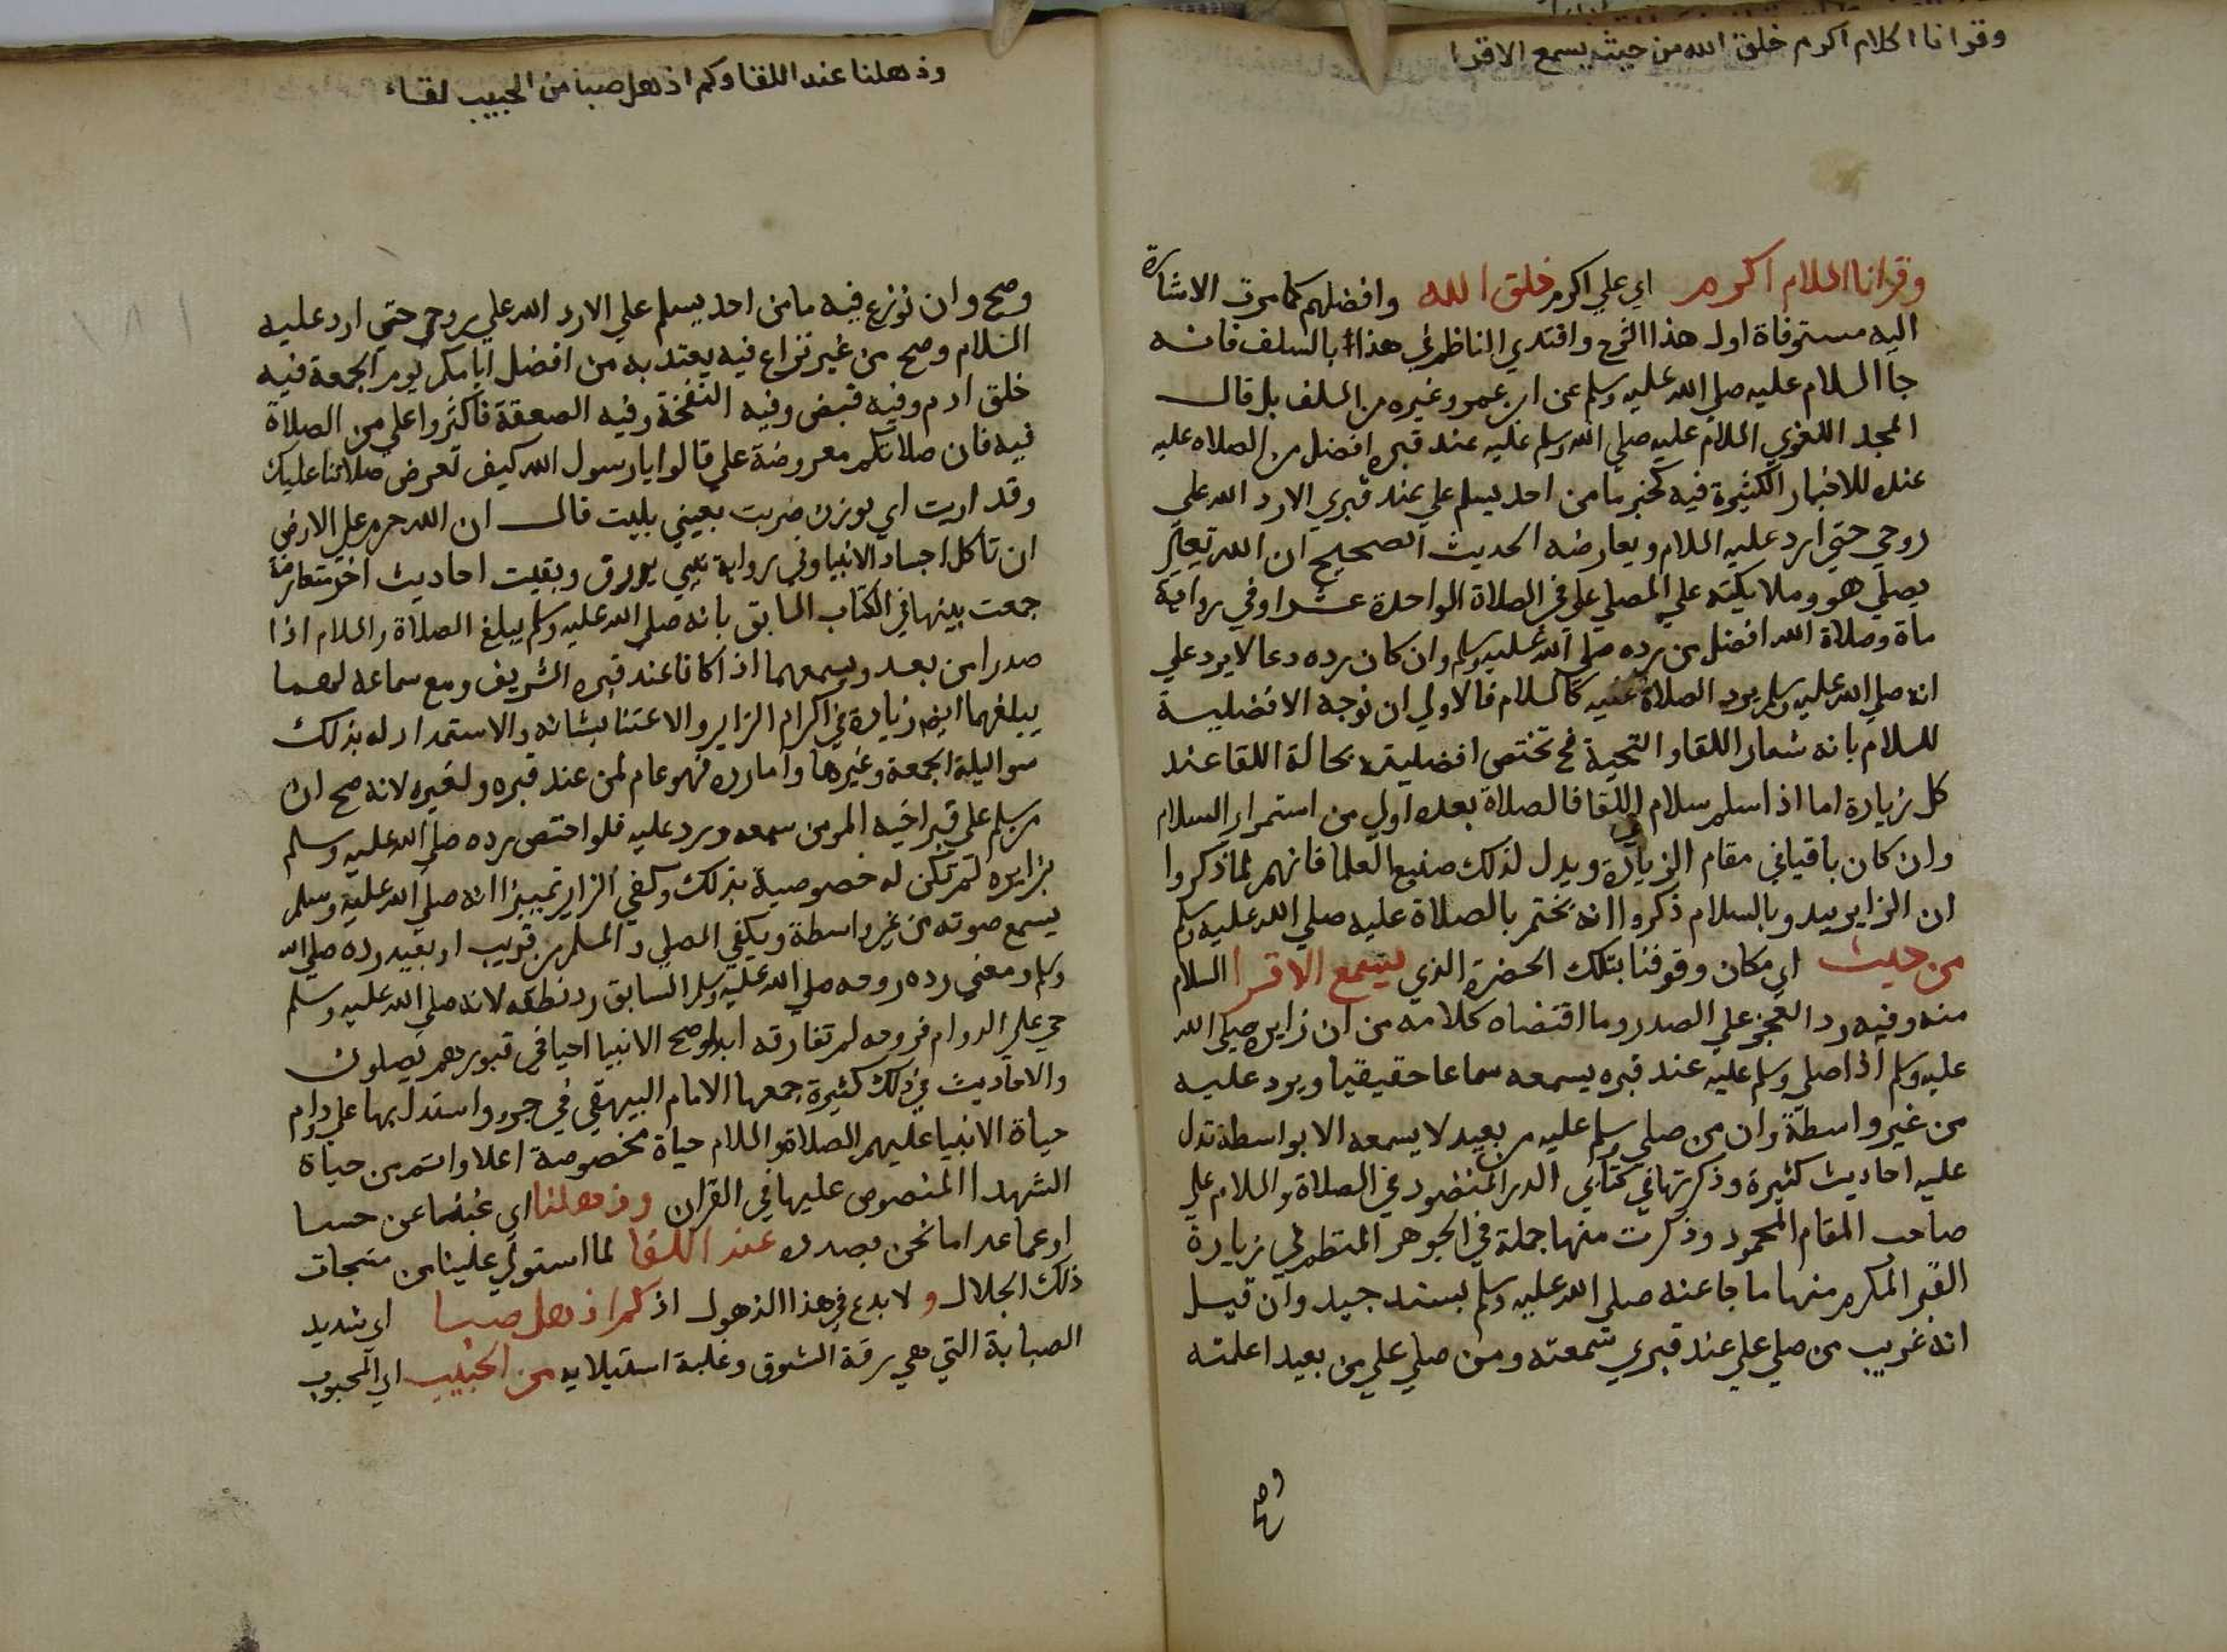 وقرانا السلام اكرم خلق الله من حيث يسمع الاقرا
وقرانا السلام اكرم اي علي اكرم خلق الله وافضلهم كما مرت الاشارة
اليه مستوفاة اول هذا الشرح واقتدي الناظم في هذا بالسلف فانه
جا السلام عليه صلي الله عليه وسلم عن ابن عمر وغيره من السلف بل قال
المجد اللغوي السلام عليه صلي الله وسلم عليه عند قبره افضل من الصلاه عليه
عنده للاخبار الكثيرة فيه كخبر ما من احد يسلم علي عند قبري الا رد الله علي
روحي حتي ارد عليه السلام ويعارضه الحديث الصحيح ان الله تعالي
يصلي هو وملايكته علي المصلي علي في الصلاة الواحدة عشرا وفي رواية
ماة وصلاة الله افضل من رده صلي الله عليه وسلم وان كان رده دعا لا يرد علي
انه صلي الله عليه وسلم يرد الصلاة عليه كالسلام فالاولي ان نوجه الافضلية
للسلام بانه شعار اللقا والتحية فح تختص افضليته بحالة اللقا عند
كل زيارة اما اذا سلم سلام اللقا فالصلاة بعده اولي من استمرار السلام
وان كان باقيا في مقام الزيارة ويدل لذلك صنيع العلما فانهم لما ذكروا
ان الزاير يبدو بالسلام ذكروا انه يختم بالصلاة عليه صلي الله عليه وسلم
من حيث اي مكان وقوفنا بتلك الحضرة الذي يسمع الاقرا السلام
منه وفيه رد العجز علي الصدر وما اقتضاه كلامه من ان زايره صلي الله
عليه وسلم اذا صلي وسلم عليه عند قبره يسمعه سماعا حقيقيا ويرد عليه
من غير واسطة وان من صلي وسلم عليه من بعيد لا يسمعه الا بواسطة تدل
عليه احاديث كثيرة وذكرتها في كتابي الدر المنضود في الصلاة والسلام علي
صاحب المقام المحمود وذكرت منها جملة في الجوهر المنظم في زيارة
القبر المكرم منها ما جا عنه صلي الله عليه وسلم بسند جيد وان قيل
انه غريب من صلي علي عند قبري سمعته ومن صلي علي من بعيد اعلمته
وصح
وذهلنا عند اللقا وكم اذهل صبا من الحبيب لقاء
وصح وان نوزع فيه ما من احد يسلم علي الا رد الله علي روحي حتي ارد عليه
السلام وصح من غير نزاع فيه يعتد به من افضل ايامكم يوم الجمعة فيه
خلق ادم وفيه قبض وفيه النفخة وفيه الصعقة فاكثروا علي من الصلاة
فيه فان صلاتكم معروضة علي قالوا يا رسول الله كيف تعرض صلاتنا عليك
وقد ارمت اي بوزن ضربت يعني بليت قال ان الله حرم علي الارض
ان تاكل اجساد الانبيا وفي رواية نبي يرزق وبقيت احاديث اخر متعارضة
جمعت بينها في الكتاب السابق بانه صلي الله عليه وسلم يبلغ الصلاة والسلام اذا
صدرا من بعد ويسمعهما اذا كانا عند قبره الشريف ومع سماعه لهما
يبلغهما ايضا زيادة في اكرام الزاير والاعتنا بشانه والاستمداد له بذلك
سوا ليلة الجمعة وغيرها واما رده فهو عام لمن عند قبره ولغيره لانه صح ان
من سلم علي قبر اخيه المومن سمعه ورد عليه فلو اختص رده صلي الله عليه وسلم
بزايره لم تكن له خصوصية بذلك وكفي الزاير تمييزا انه صلي الله عليه وسلم
يسمع صوته من غير واسطة ويكفي المصلي والمسلم من قريب او بعيد رده صلي الله
وسلم ومعني رده روحه صلي الله عليه وسلم السابق رد نطقه لانه صلي الله عليه وسلم
حي علي الدوام فروحه لم تفارقه ابدا وصح الانبيا احيا في قبورهم يصلون
والاحاديث في ذلك كثيرة جمعها الامام البيهقي في جزو واستدل بها علي دوام
حياة الانبيا عليهم الصلاة والسلام حياة مخصوصة اعلا واتم من حياة
الشهدا المنصوص عليها في القران وذهلنا اي غبنا عن حسنا
او عما عدا ما نحن بصدده عند اللقا لما استولي علينا من
ذلك الجلال ولا بدع في هذا الذهول اذ كم اذهل صبا اي شديد
الصبابة التي هي رقة الشوق وغلبة استيلايه من الحبيب اي المحبوب